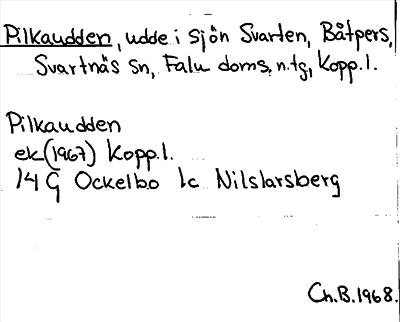 Pilkaudden, udde i sjön Svarten, Båtpers,
Svartnäs sn, Falu doms. n. tg, Kopp. l.
Pilkaudden
ek (1967) Kopp. l.
14 G Ockelbo 1c Nilslarsberg
Ch. B. 1968.